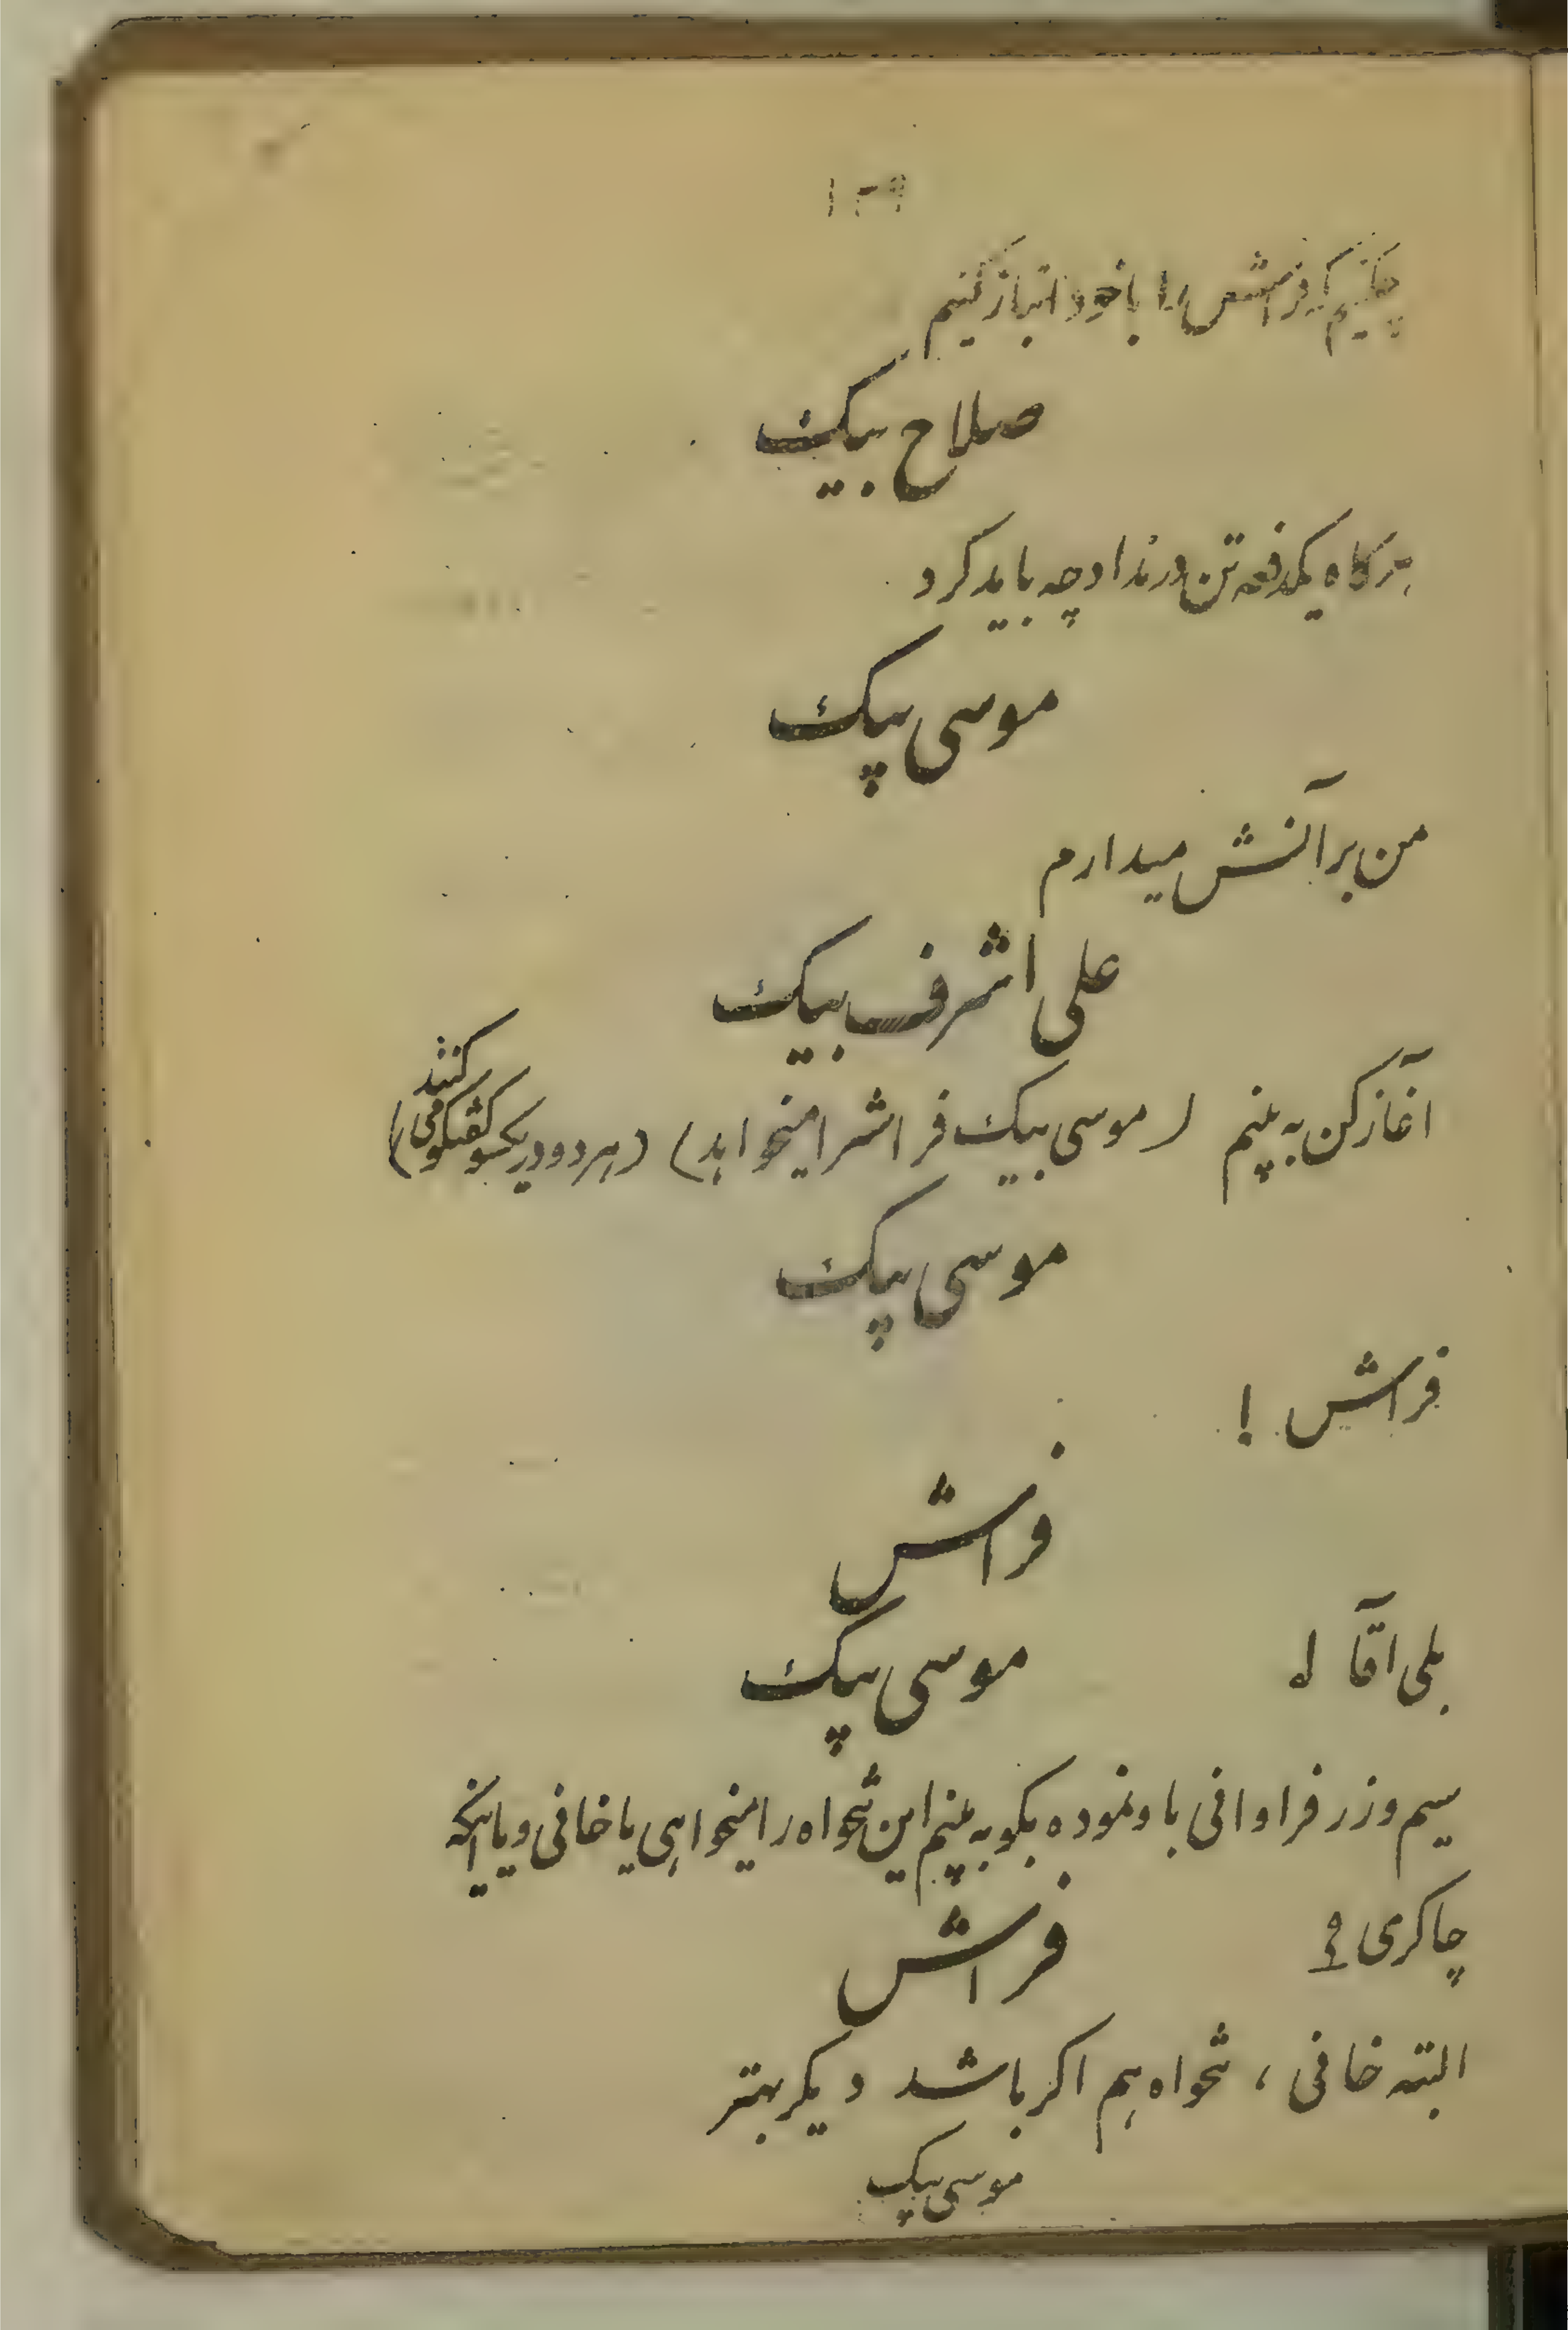 ۱۳۹
چکنیم که فراش را با خود انباز کنیم
صلاح بیک
هرکاه یکدفعه تن در نداد چه باید کرد
موسی بیک
من بر آنش میدارم
علی اشرف بیک
آغاز کن به بینم (موسی بیک فراشرا میخواهد) (هر دو در یکسو کفتکو می کنند)
موسی بیک
فراش !
فراش
بلی اقآ !
موسی بیک
سیم و زر فراوانی باو نموده بکو به بینم این تنخواه را میخواهی یا خافی و یا اینکه
چاکری ؟
فراش
البته خافی ، تنخواه هم اکر باشد دیکر بهتر
موسی بیک